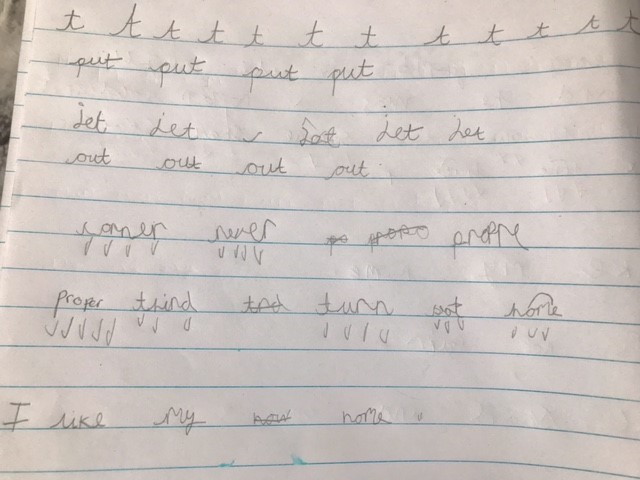 t t t t t t t t t t t t
put put put put
jet jet jet jet
out out out out
never proppe
proper thind turn not home
I like my home.